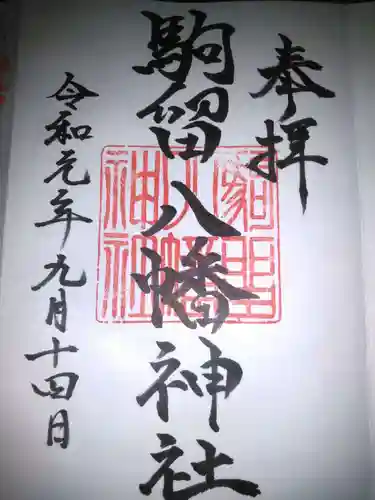 奉拝
駒留八幡神社
令和元年九月十四日
駒留八幡神社